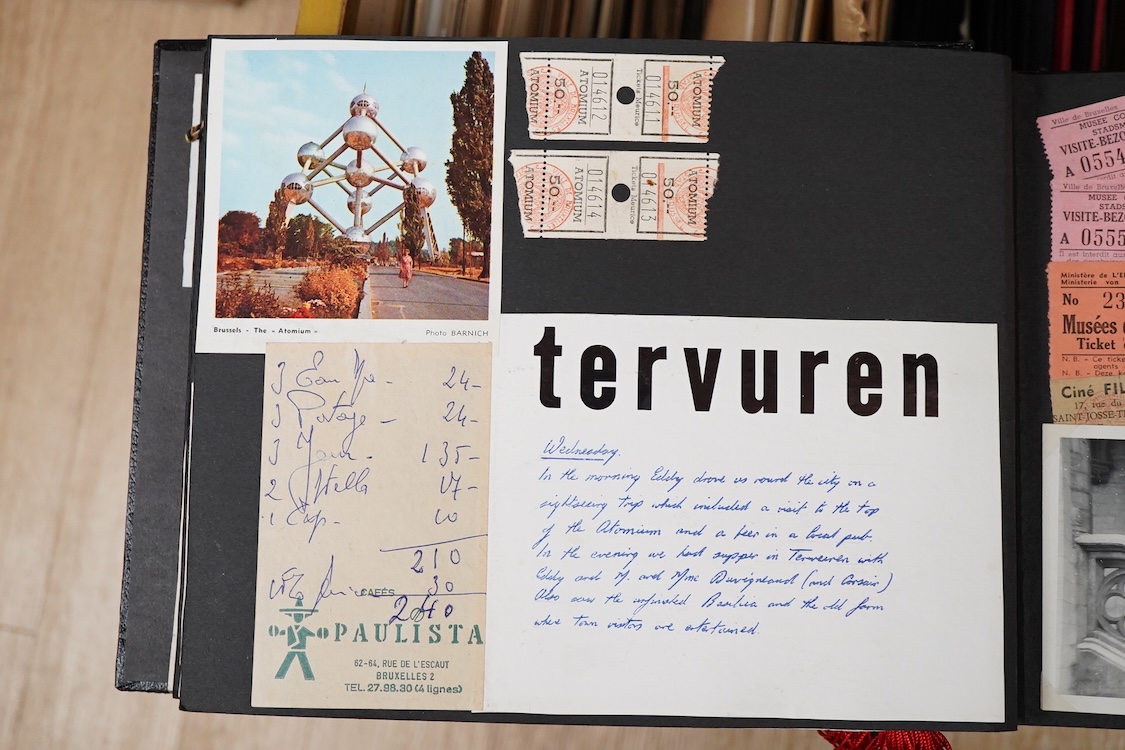 Brussels - The « Atomium »
Photo BARNICH
ATOMIUM
50.-
ATOMIUM
014612
Tickets Meurice
014611
50.-
ATOMIUM
ATOMIUM
50.-
ATOMIUM
014614
Tickets Meurice
014613
50.-
ATOMIUM
3 24-
3 Potage - 24-
3 135-
2 Stella 17-
1 Cap - 10
210
30
240
CAFÉS
PAULISTA
62-64, RUE DE L'ESCAUT
BRUXELLES 2
TEL. 27.98.30 (4 lignes)
tervuren
Wednesday.
In the morning Eddy drove us round the city on a
sightseeing trip which included a visit to the top
of the Atomium and a beer in a local pub.
In the evening we had supper in Terveuren with
Eddy and M. and Mme Duvigneaud (and Corsair)
Also saw the unfinished Basilica and the old farm
where town visitors are entertained.
Ville de Bruxelles
MUSEE CO
STADSM
VISITE-BEZO
A 0554
Ville de Bruxelles
MUSEE
STADS
VISITE-BEZ
A 0555
Il est interdit
Ministère de L'E
Ministerie van
No 23
Musées
Ticket
N. B. - Ce ticke
agents
N. B. - Deze
Ciné FIL
17, rue du
SAINT-JOSSE-T